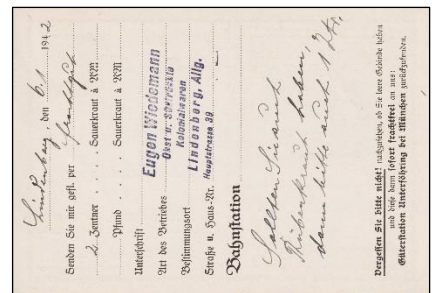 Lindenberg, den 6.1. 1942
Senden Sie mir gefl. per Frachtgut
2 Zentner . . . . Sauerkraut à RM
Pfund . . . . Sauerkraut à RM
Unterschrift
Art des Betriebes
Bestimmungsort
Straße u. Haus-Nr.
Eugen Wiedemann
Obst u. Südfrüchte
Kolonialwaren
Lindenberg, Allg.
Hauptstrasse 39
Bahnstation
Sollten Sie auch
Rübenkraut haben,
dann bitte auch 1 Ztr.
Vergessen Sie bitte nicht! nachzusehen, ob Sie leere Gebinde haben
und diese dann sofort frachtfrei an uns:
Güterstation Unterföhring bei München zurückzusenden.